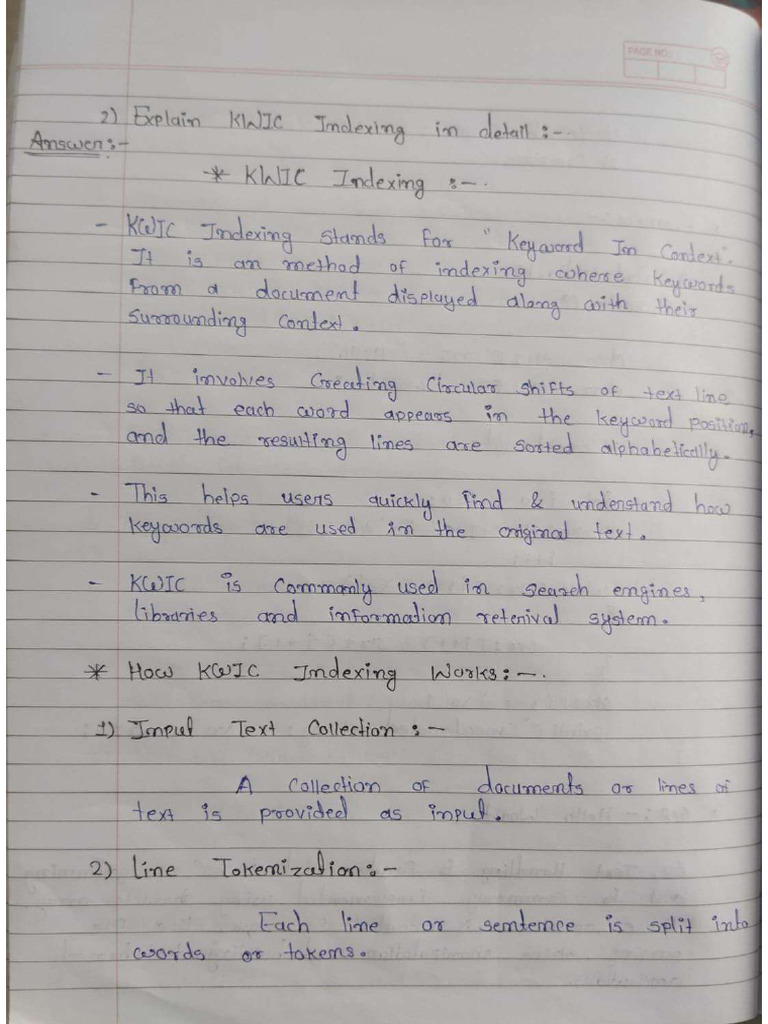 PAGE NO:
2) Explain KWIC Indexing in detail :-.
Answer :-
* KWIC Indexing :-.
- KWIC Indexing stands for "Keyword In Context".
It is an method of indexing where keywords
from a document displayed along with their
surrounding context.
- It involves Creating Circular shifts of text line
so that each word appears in the keyword position,
and the resulting lines are sorted alphabetically.
- This helps users quickly find & understand how
keywords are used in the original text.
- KWIC is Commonly used in search engines,
libraries and information reterival system.
* How KWIC Indexing Works :-.
1) Input Text Collection :-
A Collection of documents or lines of
text is provided as input.
2) Line Tokenization :-
Each line or sentence is split into
words or tokens.